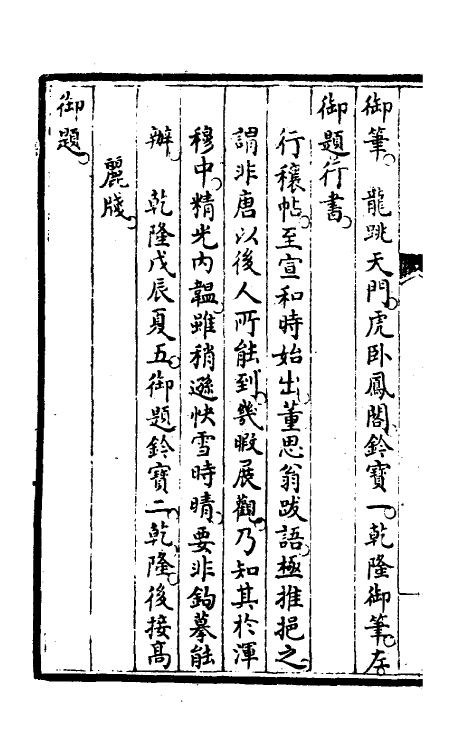 御筆龍跳天門虎卧鳳閣鈐寶一乾隆御筆存
御題行書
行穰帖至宣和時始出董思翁跋語極推挹之
謂非唐以後人所能到幾暇展觀乃知其於渾
穆中精光内韞雖稍遜快雪時晴要非鈎摹能
辦　乾隆戊辰夏五御題鈐寶二乾隆後接髙
麗牋
御題